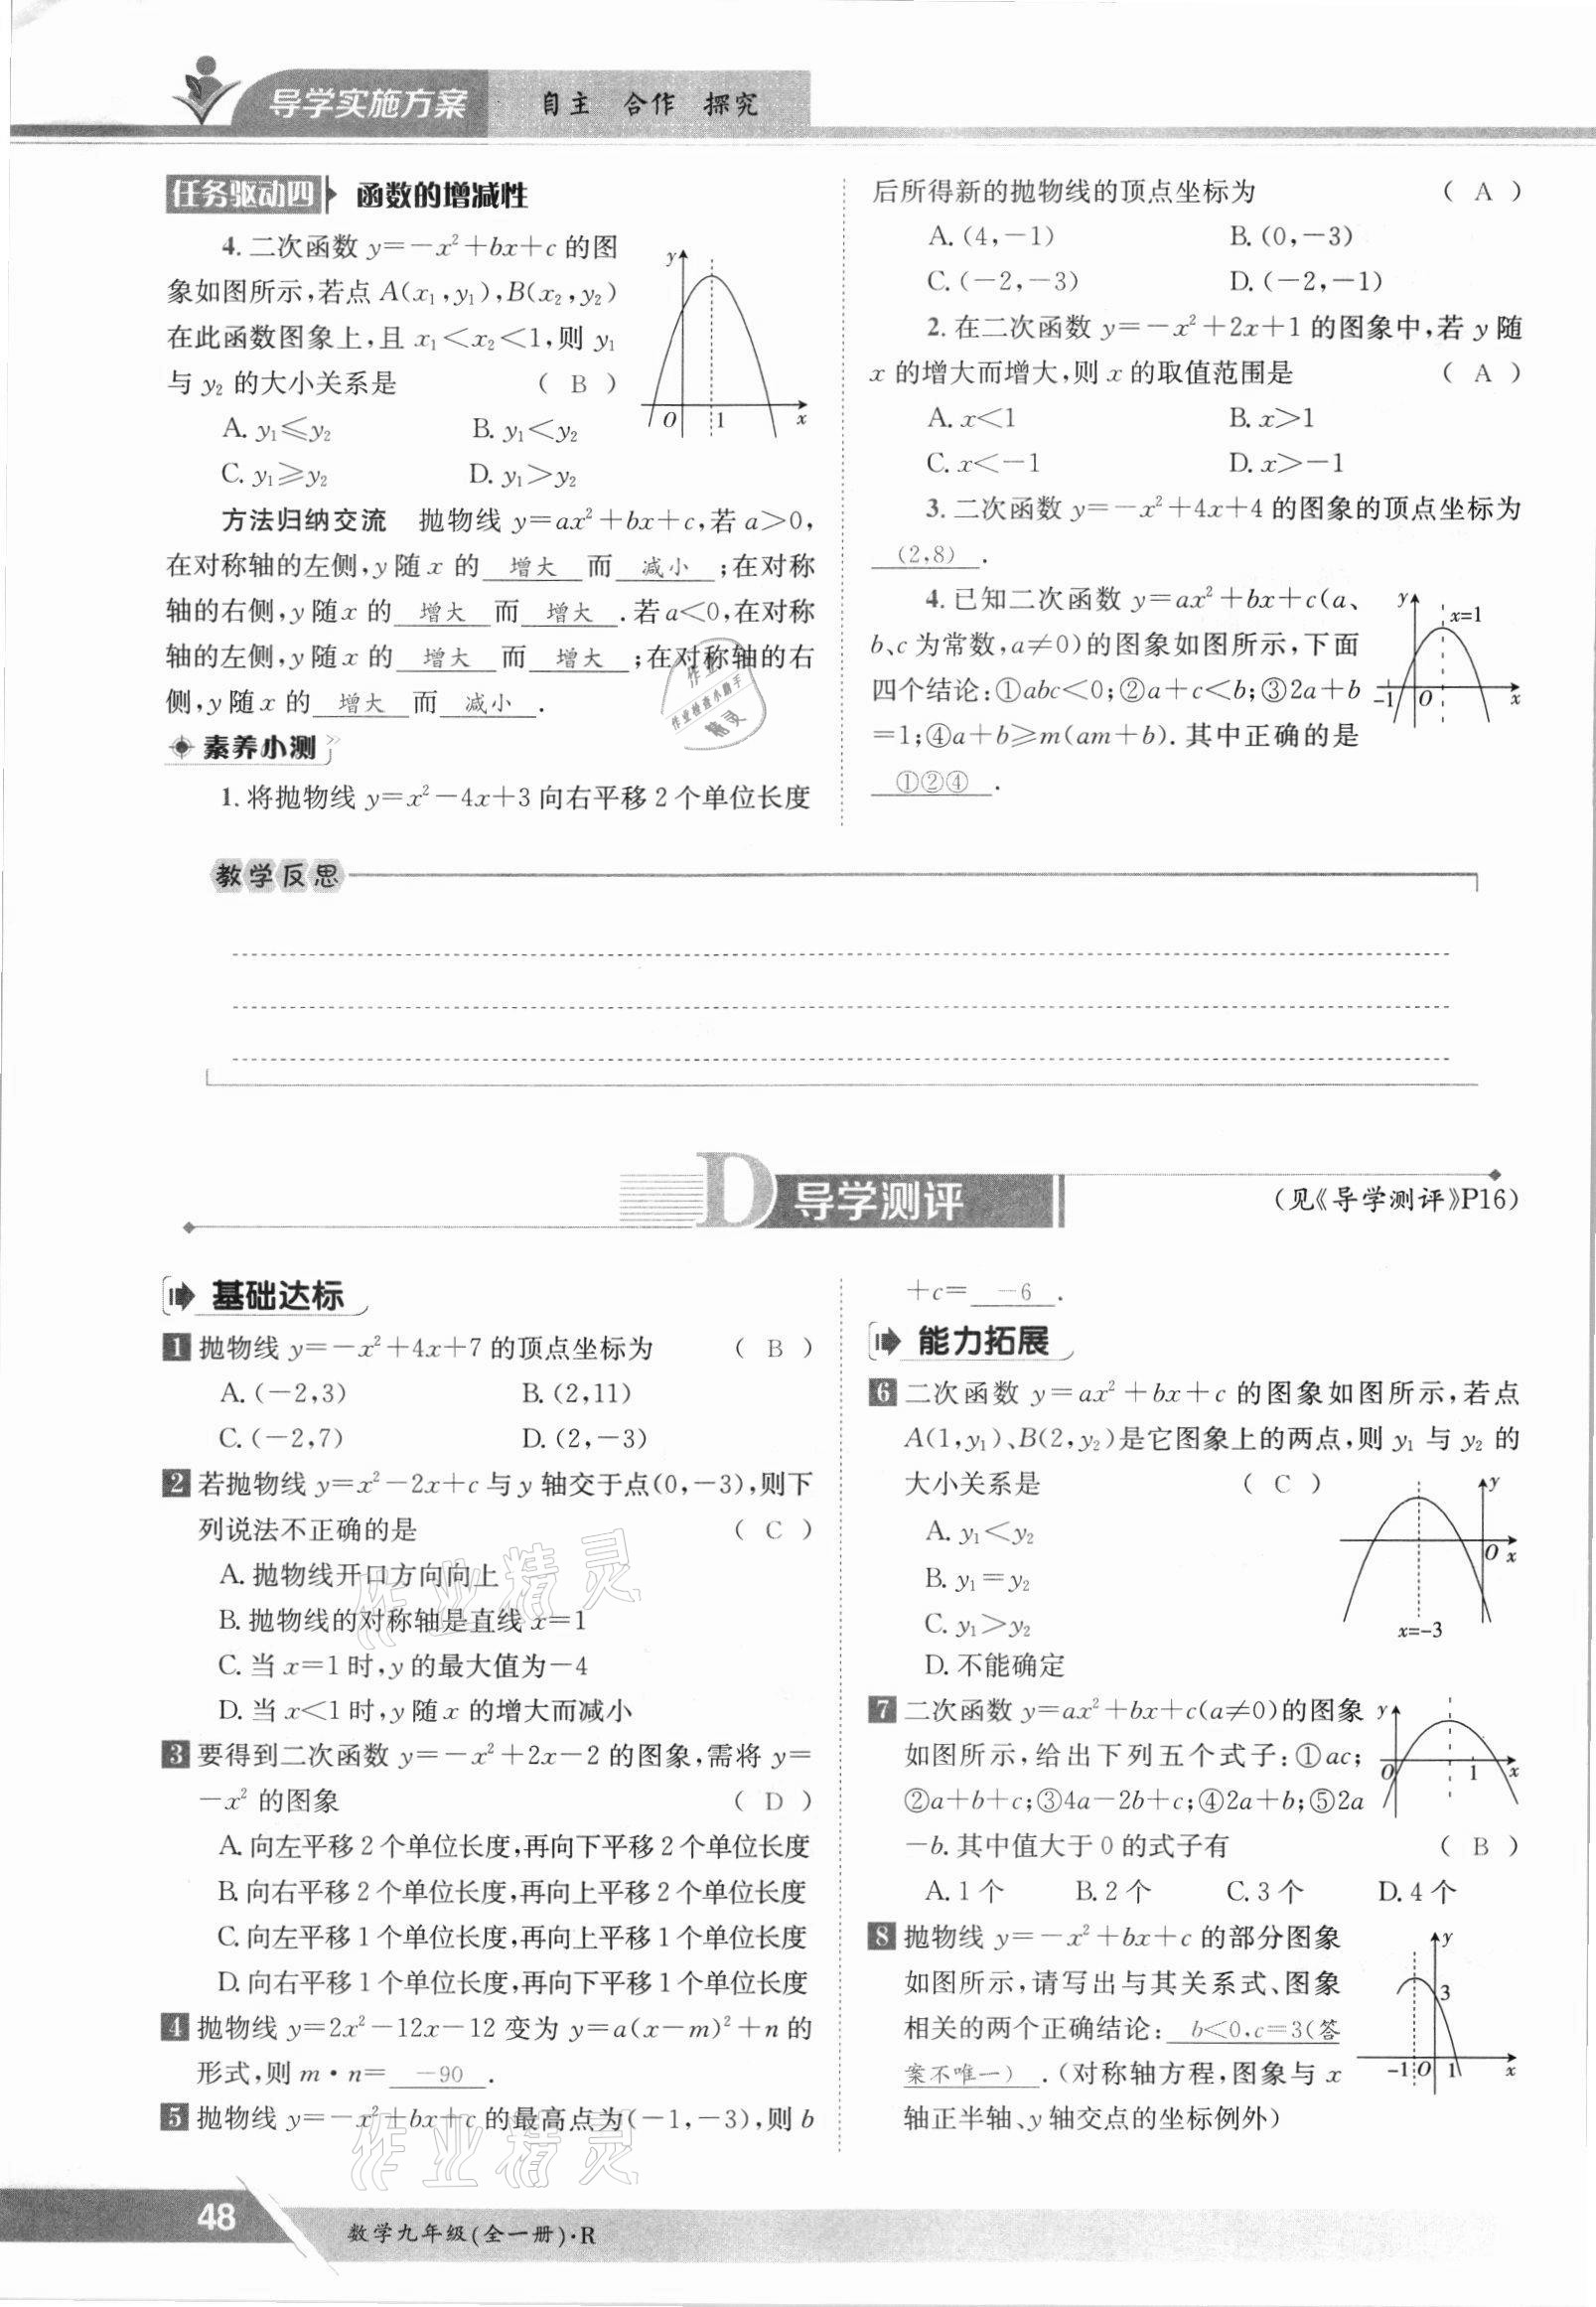 导学实施方案 自主 合作 探究
任务驱动四 函数的增减性
4. 二次函数 y=-x²+bx+c 的图
象如图所示,若点 A(x₁,y₁),B(x₂,y₂)
在此函数图象上,且 x₁<x₂<1,则 y₁
与 y₂ 的大小关系是 ( B )
A. y₁≤y₂ B. y₁<y₂
C. y₁≥y₂ D. y₁>y₂
y
O 1 x
方法归纳交流 抛物线 y=ax²+bx+c,若 a>0,
在对称轴的左侧,y 随 x 的 增大 而 减小 ;在对称
轴的右侧,y 随 x 的 增大 而 增大 .若 a<0,在对称
轴的左侧,y 随 x 的 增大 而 增大 ;在对称轴的右
侧,y 随 x 的 增大 而 减小 .
素养小测
1. 将抛物线 y=x²-4x+3 向右平移 2 个单位长度
后所得新的抛物线的顶点坐标为 ( A )
A. (4,-1) B. (0,-3)
C. (-2,-3) D. (-2,-1)
2. 在二次函数 y=-x²+2x+1 的图象中,若 y 随
x 的增大而增大,则 x 的取值范围是 ( A )
A. x<1 B. x>1
C. x<-1 D. x>-1
3. 二次函数 y=-x²+4x+4 的图象的顶点坐标为
(2,8) .
4. 已知二次函数 y=ax²+bx+c(a、
b、c 为常数,a≠0)的图象如图所示,下面
四个结论:①abc<0;②a+c<b;③2a+b
=1;④a+b≥m(am+b). 其中正确的是
①②④ .
y
x=1
-1 O x
作业
作业检查小助手
精灵
教学反思
D 导学测评
(见《导学测评》P16)
基础达标
1 抛物线 y=-x²+4x+7 的顶点坐标为 ( B )
A. (-2,3) B. (2,11)
C. (-2,7) D. (2,-3)
2 若抛物线 y=x²-2x+c 与 y 轴交于点(0,-3),则下
列说法不正确的是 ( C )
A. 抛物线开口方向向上
B. 抛物线的对称轴是直线 x=1
C. 当 x=1 时,y 的最大值为-4
D. 当 x<1 时,y 随 x 的增大而减小
3 要得到二次函数 y=-x²+2x-2 的图象,需将 y=
-x² 的图象 ( D )
A. 向左平移 2 个单位长度,再向下平移 2 个单位长度
B. 向右平移 2 个单位长度,再向上平移 2 个单位长度
C. 向左平移 1 个单位长度,再向上平移 1 个单位长度
D. 向右平移 1 个单位长度,再向下平移 1 个单位长度
4 抛物线 y=2x²-12x-12 变为 y=a(x-m)²+n 的
形式,则 m·n= -90 .
5 抛物线 y=-x²+bx+c 的最高点为(-1,-3),则 b
+c= -6 .
能力拓展
6 二次函数 y=ax²+bx+c 的图象如图所示,若点
A(1,y₁)、B(2,y₂)是它图象上的两点,则 y₁ 与 y₂ 的
大小关系是 ( C )
A. y₁<y₂
B. y₁=y₂
C. y₁>y₂
D. 不能确定
y
O x
x=-3
7 二次函数 y=ax²+bx+c(a≠0)的图象
如图所示,给出下列五个式子:①ac;
②a+b+c;③4a-2b+c;④2a+b;⑤2a
-b. 其中值大于 0 的式子有 ( B )
A. 1 个 B. 2 个 C. 3 个 D. 4 个
y
O 1 x
8 抛物线 y=-x²+bx+c 的部分图象
如图所示,请写出与其关系式、图象
相关的两个正确结论: b<0,c=3(答
案不唯一) .(对称轴方程,图象与 x
轴正半轴、y 轴交点的坐标例外)
y
3
-1 O 1 x
作业精灵
作业精灵
48 数学九年级(全一册)·R